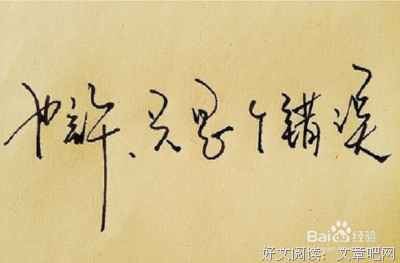 也許、只是个错误
Bai 经验
好文阅读：文章吧网